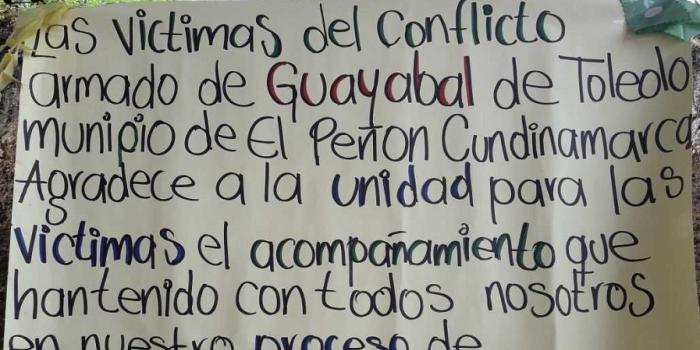 Las victimas del Conflicto
armado de Guayabal de Toledo
munipio de El Peñon Cundinamarca
Agradece a la unidad para las
victimas el acompañamiento que
hantenido con todos nosotros
en nuestro proceso de